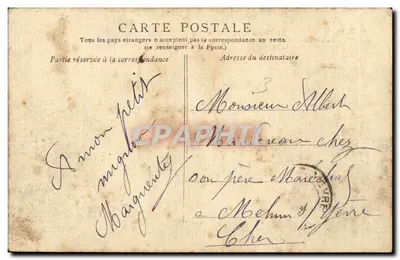 CARTE POSTALE
Tous les pays étrangers n'acceptent pas la correspondance au recto.
(se renseigner à la Poste.)
Partie réservée à la correspondance
Adresse du destinataire
A mon petit
mignon
Marguerite
Monsieur Albert
chez
son père Maréchal
à Mehun s/ Yèvre
Cher
CARTE-POSTALE
YEVRE